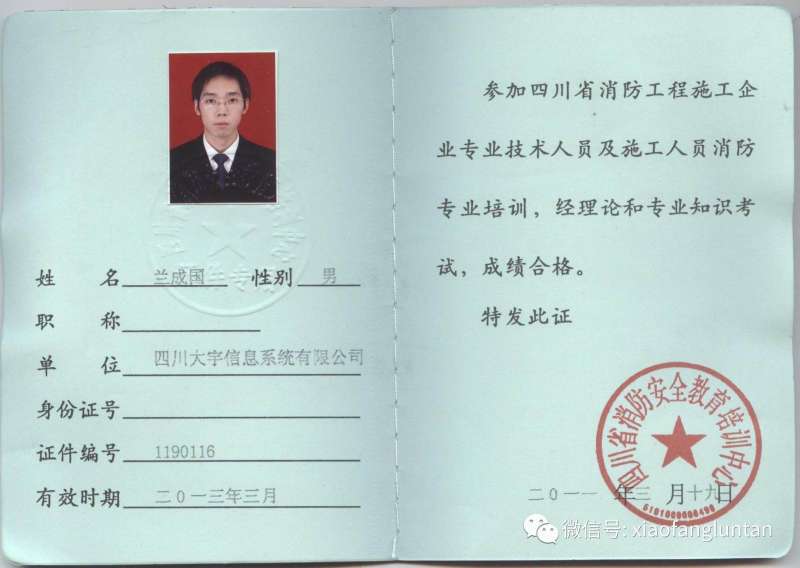 姓 名 兰成国 性别 男
职 称
单 位 四川大宇信息系统有限公司
身份证号
证件编号 1190116
有效时期 二○一三年三月
参加四川省消防工程施工企
业专业技术人员及施工人员消防
专业培训，经理论和专业知识考
试，成绩合格。
特发此证
四川省消防安全教育培训中心
二○一一 年 三 月 十九 日
微信号: xiaofangluntan